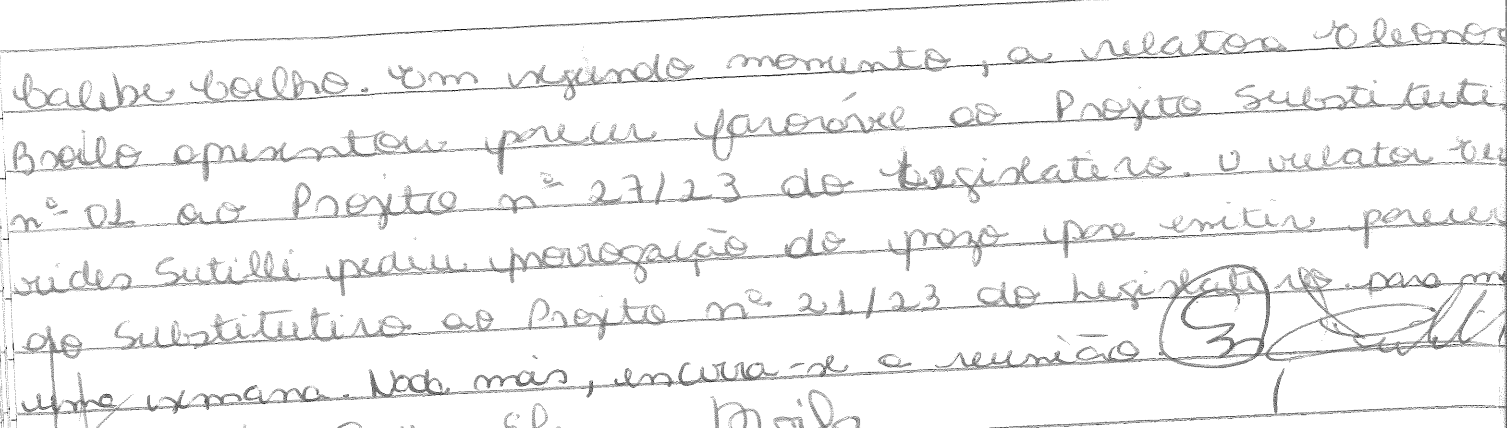 Calebe Coelho. Em segundo momento, a relatora Eleonor
Broilo apresentou parecer favorável ao Projeto Substituti
nº 01 ao Projeto nº 27/23 do Legislativo. O relator Eu
rides Sutilli pediu prorrogação do prazo para emitir parecer
do Substitutivo ao Projeto nº 21/23 do Legislativo para m
uma semana. Nada mais, encerra-se a reunião